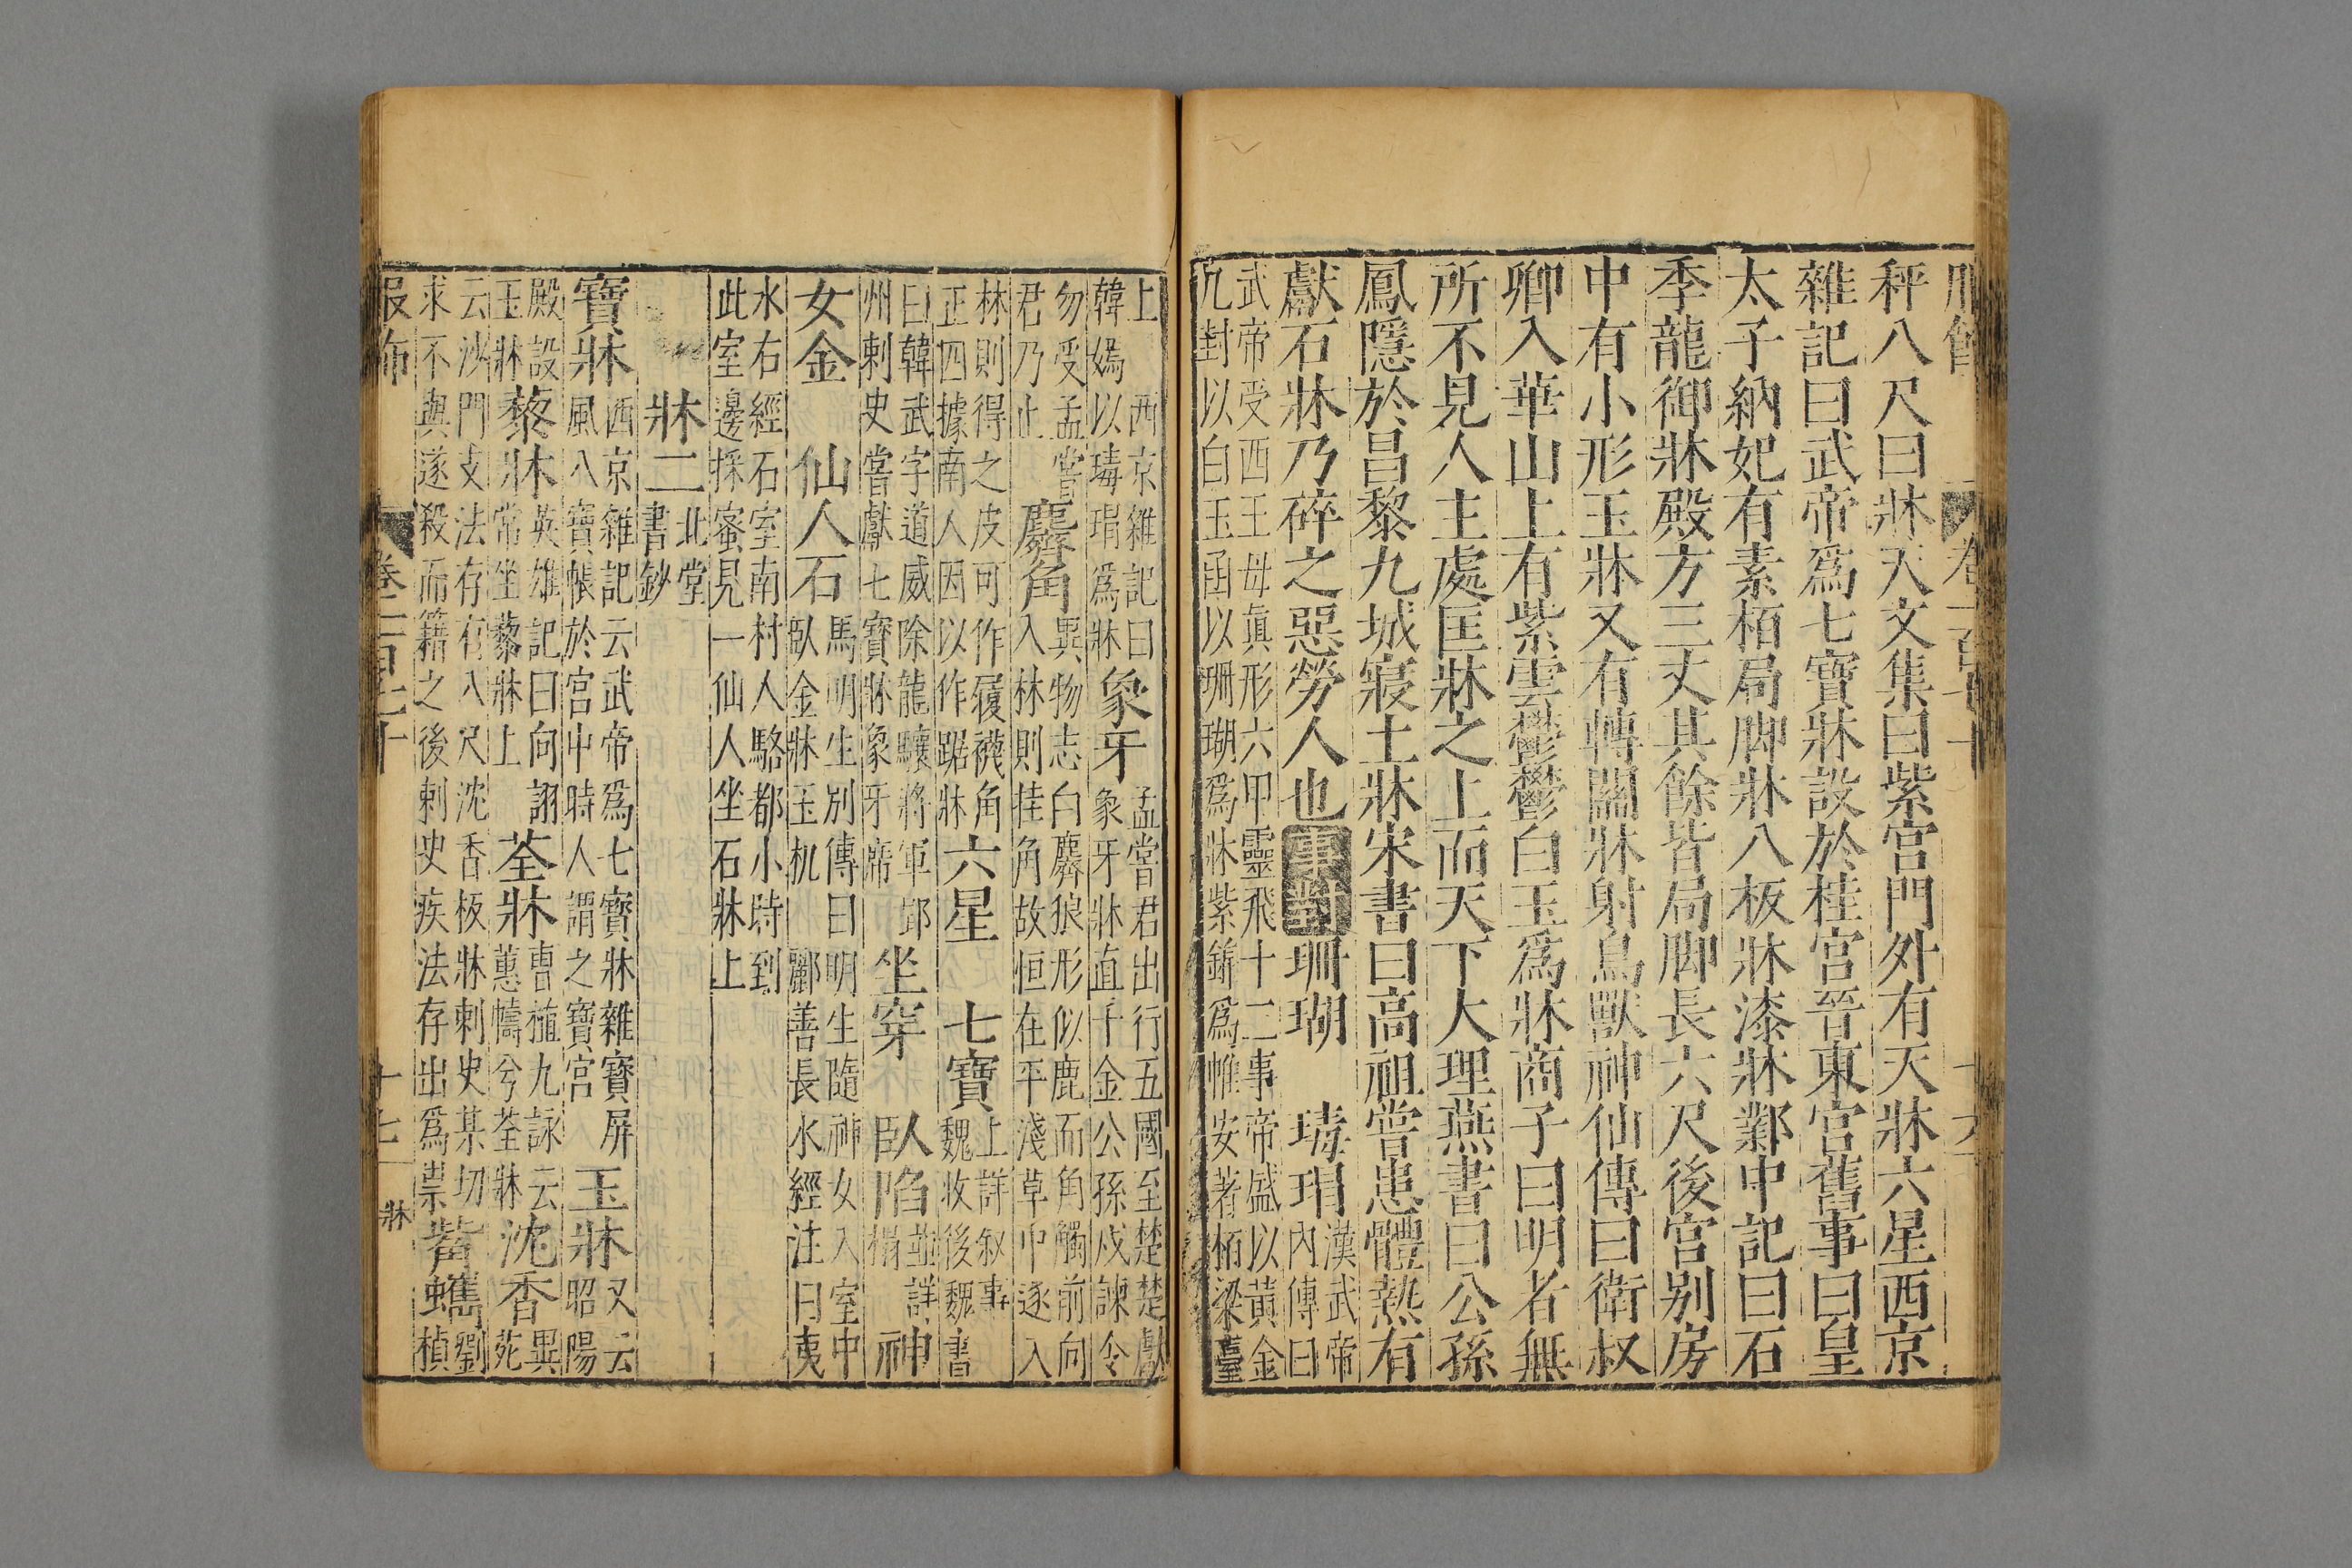 秤八尺曰牀天文集曰紫宫門外有天牀六星西京
雜記曰武帝爲七寶牀設於桂宫晉東宫舊事曰皇
太子納妃有素栢局脚牀八板牀漆牀鄴中記曰石
季龍御牀殿方三丈其餘皆局脚長六尺後宫别房
中有小形玉牀又有轉關牀射鳥獸神仙傳曰衛叔
卿入華山上有紫雲鬱鬱白玉爲牀商子曰明者無
所不見人主處匡牀之上而天下大理燕書曰公孫
鳳隱於昌黎九城寢土牀宋書曰高祖嘗患體熱有
獻石牀乃碎之惡勞人也事對珊瑚 瑇瑁
漢武帝
内傳曰
武帝受西王母眞形六甲靈飛十二事帝盛以黄金
九封以白玉函以珊瑚爲牀紫錦爲帷安著栢梁臺
上 西京雜記曰
韓嫣以瑇瑁爲牀
象牙
孟嘗君出行五國至楚楚獻
象牙牀直千金公孫戍諫令
勿受孟嘗
君乃止
麢角
異物志白麢狼形似鹿而角觸前向
入林則挂角故恒在平淺草中逐入
林則得之皮可作履襪角
正四據南人因以作踞牀
六星 七寶
上詳叙事
魏收後魏書
曰韓武字道威除龍驤將軍郢
州刺史嘗獻七寶牀象牙席
坐穿 臥陷
並詳
榻
神
女金 仙人石
馬明生别傳曰明生隨神女入室中
臥金牀玉机 酈善長水經注曰夷
水右經石室南村人駱都小時到
此室邊採蜜見一仙人坐石牀上
牀二
北堂
書鈔
寶牀
西京雜記云武帝爲七寶牀雜寶屏
風八寶帳於宫中時人謂之寶宫
玉牀
又云
昭陽
殿設
玉牀
藜牀
英雄記曰向詡
常坐藜牀上
荃牀
曹植九詠云
蕙幬兮荃牀
沈香
異
苑
云沙門支法存有八尺沈香板牀刺史某切
求不與遂殺而籍之後刺史疾法存出爲祟
觜蠵
劉
楨
卷一百七十
十七
牀